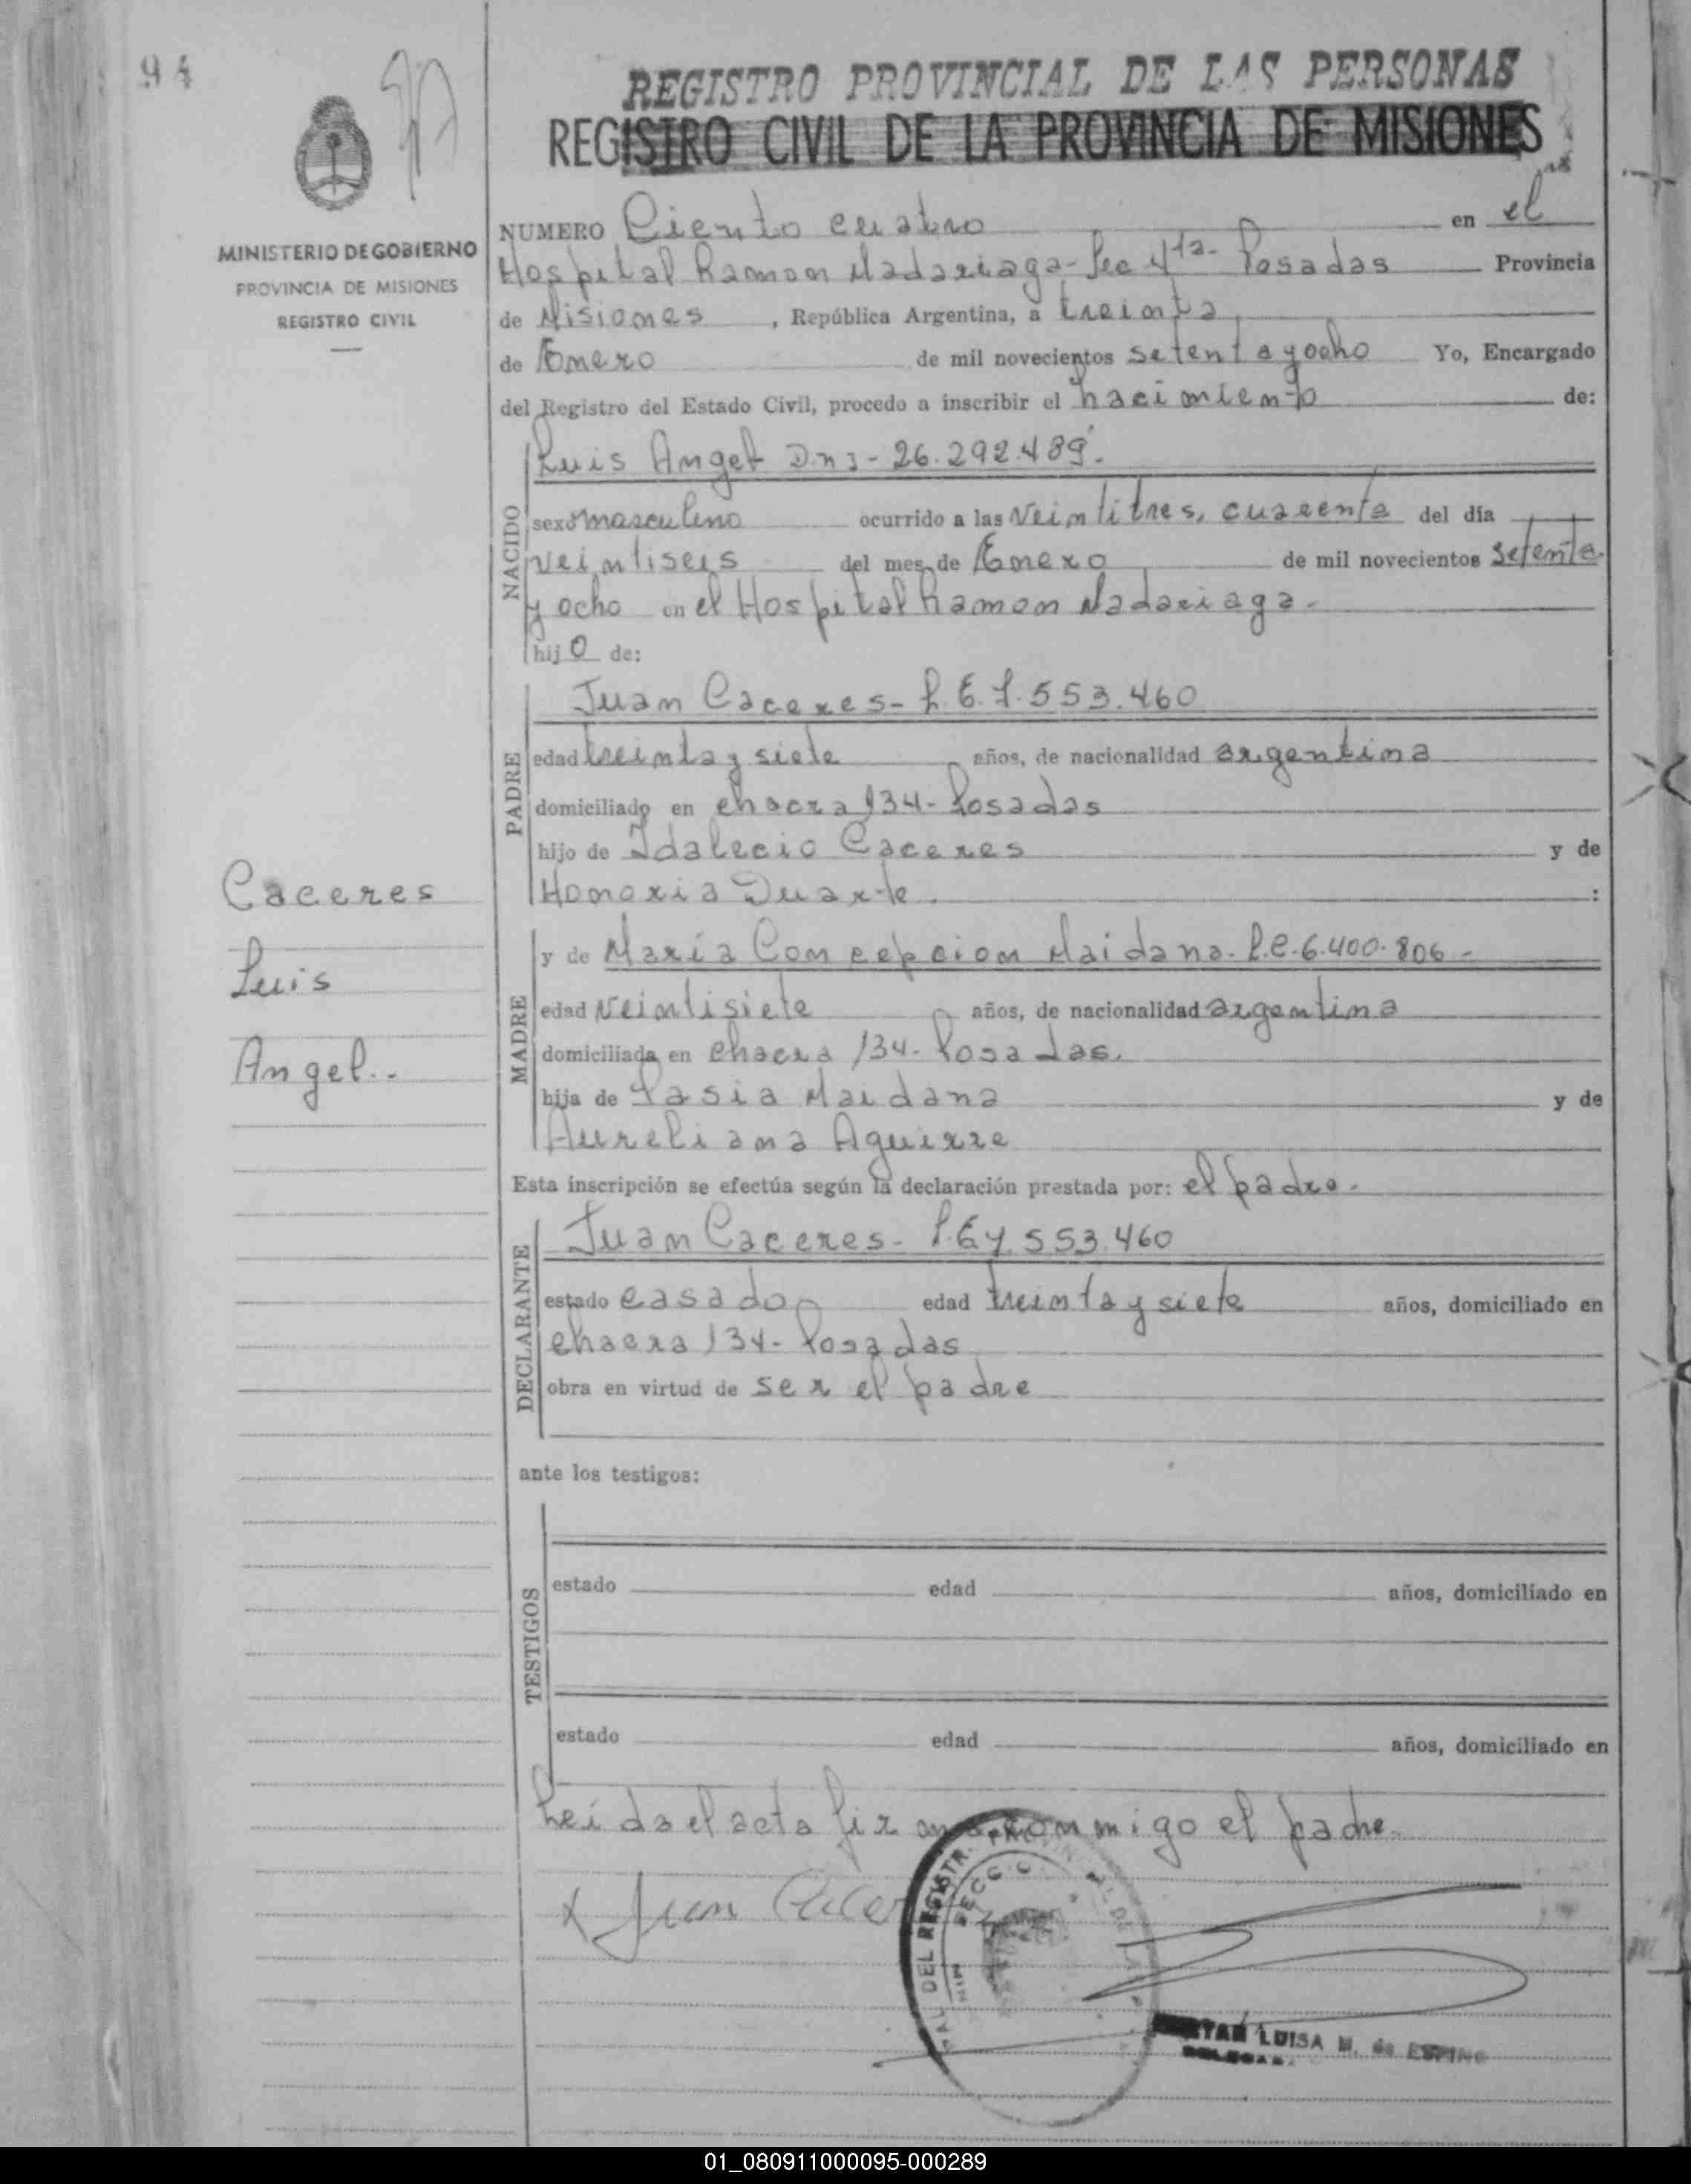 94
REGISTRO PROVINCIAL DE LAS PERSONAS
REGISTRO CIVIL DE LA PROVINCIA DE MISIONES
MINISTERIO DE GOBIERNO
PROVINCIA DE MISIONES
REGISTRO CIVIL
NUMERO Ciento cuatro en el
Hospital Ramon Madariaga- Sec 4ta- Posadas Provincia
de Misiones, República Argentina, a treinta
de Enero de mil novecientos setenta y ocho Yo, Encargado
del Registro del Estado Civil, procedo a inscribir el nacimiento de:
NACIDO
Luis Angel D.n.I- 26.292.489.
sexo masculino ocurrido a las veintitres, cuarenta del día
veintiseis del mes de Enero de mil novecientos setenta
y ocho en el Hospital Ramon Madariaga.
hijo de:
PADRE
Juan Caceres- L.E.7.553.460
edad treinta y siete años, de nacionalidad argentina
domiciliado en chacra 134- Posadas
hijo de Idalecio Caceres y de
Honoria Duarte. :
Caceres
Luis
Angel..
MADRE
y de María Concepcion Maidana. L.C.6.400.806-
edad veintisiete años, de nacionalidad argentina
domiciliada en chacra 134- Posadas.
hija de Pasia Maidana y de
Aureliana Aguirre
Esta inscripción se efectúa según la declaración prestada por: el padre.
DECLARANTE
Juan Caceres- L.E 7.553.460
estado casado edad treinta y siete años, domiciliado en
chacra 134- Posadas
obra en virtud de ser el padre
ante los testigos:
TESTIGOS
estado edad años, domiciliado en
estado edad años, domiciliado en
Leída el acta firma conmigo el padre.
x Juan Cacer
DEL REGISTR.
LUISA M. de ESPINO
01_080911000095-000289